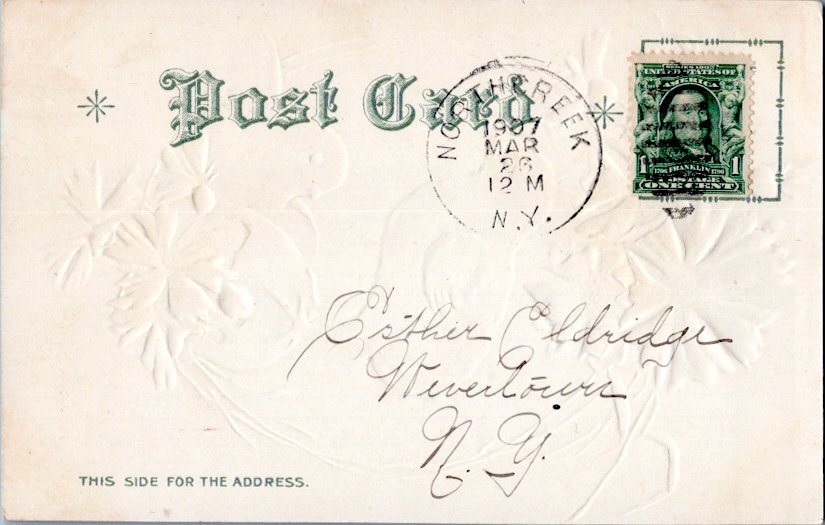 Post Card
NORTH CREEK
1907
MAR
26
12 M
N.Y.
SERIES 1902
UNITED STATES OF
AMERICA
1 1
1706 FRANKLIN 1790
POSTAGE
ONE CENT
Esther Eldridge
Wevertown
N. Y.
THIS SIDE FOR THE ADDRESS.